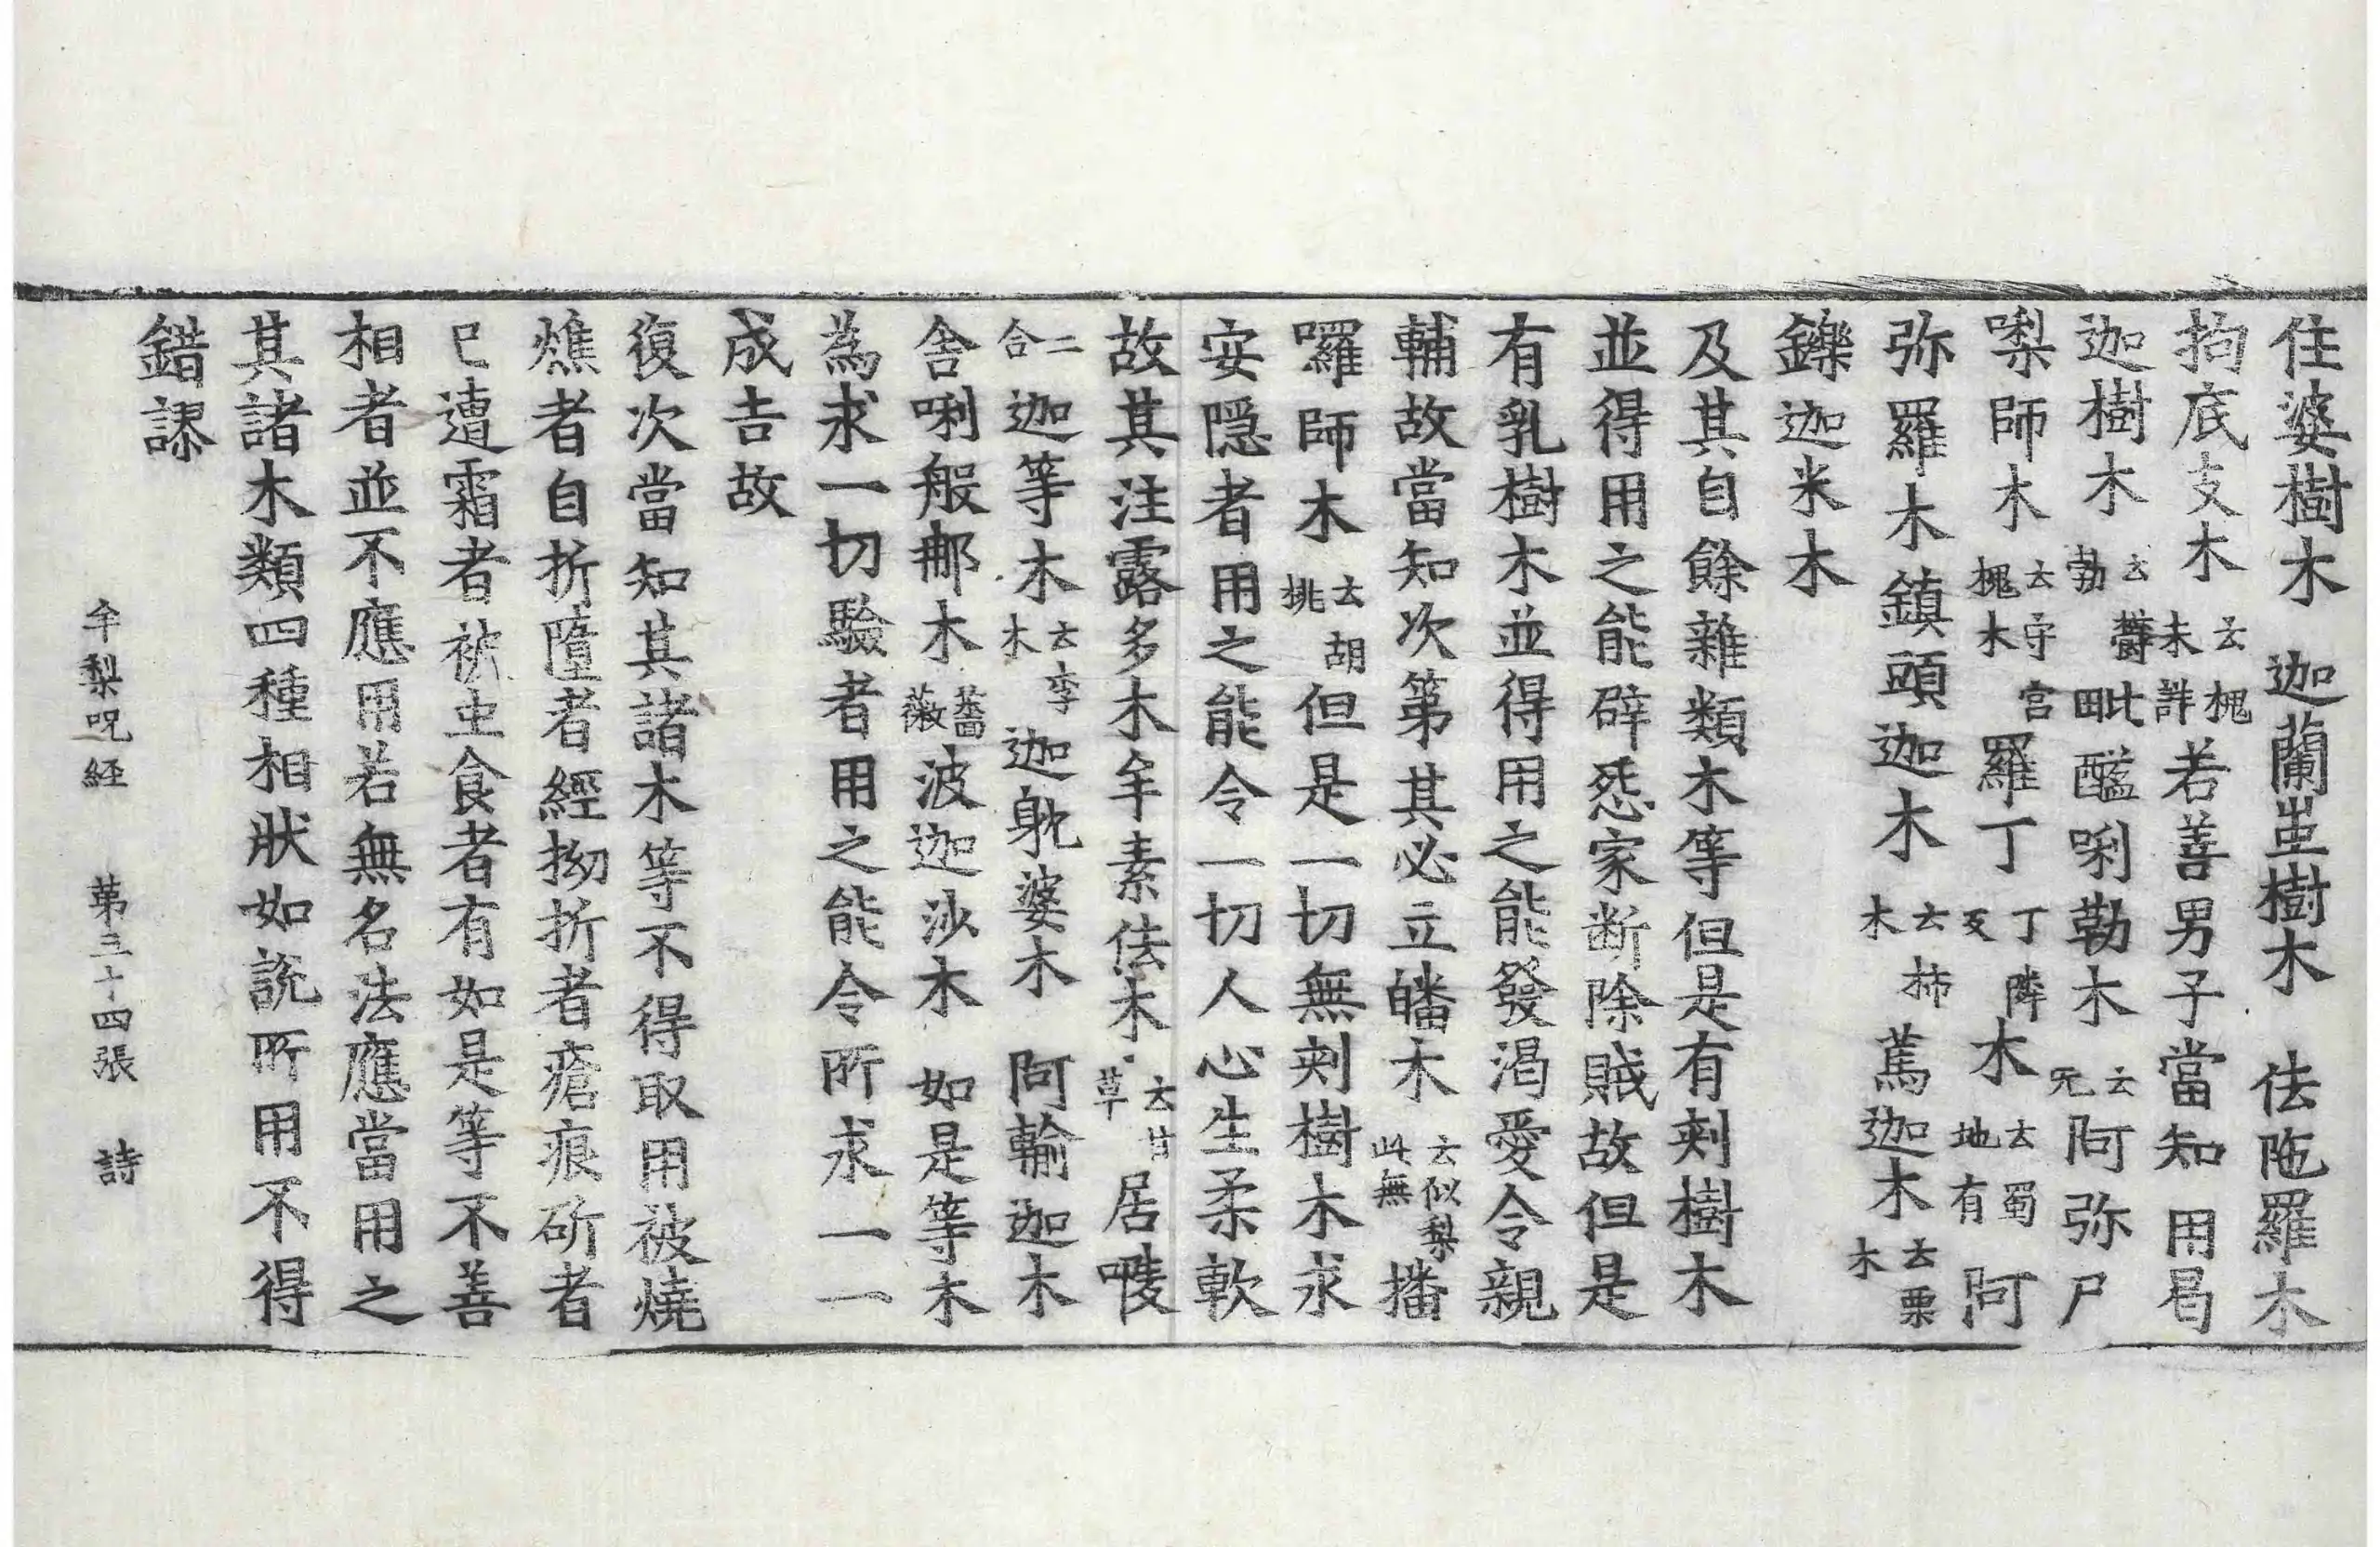 住婆樹木 迦蘭坐樹木 佉陁羅木
拘底支木 云槐未詳 若善男子當知用曷
迦樹木 云欝勃 毗醯唎勒木 云无 阿弥尸
㗚師木 云守宮槐木 羅丁 丁隣反 木 云蜀地有 阿
弥羅木鎮頭迦木 云柿木 蔦迦木 云栗木
鑠迦米木
及其自餘雜類木等但是有刾樹木
並得用之能辟惌家断除賊故但是
有乳樹木並得用之能發渴愛令親
輔故當知次第其必立皤木 云似梨此無 播
囉師木 云胡桃 但是一切無刾樹木求
安隱者用之能令一切人心生柔軟
故其注露多木牟素佉木 云甘草 居㗚
二合 迦等木 云李木 迦躭婆木 阿輸迦木
舍唎般那木 薔薇 波迦沙木 如是等木
為求一切驗者用之能令所求一一
成吉故
復次當知其諸木等不得取用被燒
燋者自折墮者經拗折者瘡痕斫者
已遭霜者被虫食者有如是等不善
相者並不應用若無名法應當用之
其諸木類四種相狀如說所用不得
錯謬
牟梨呪経 第三十四張 詩